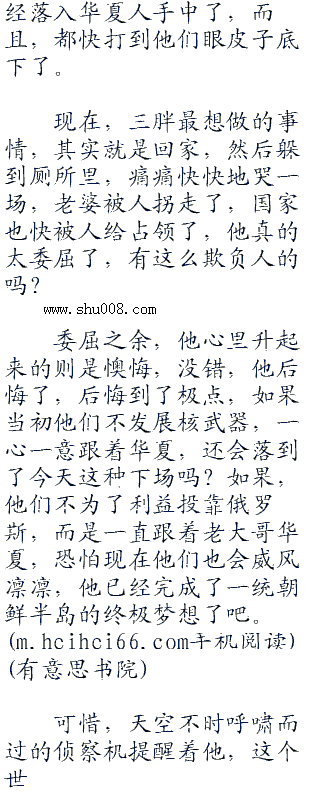 经落入华夏人手中了，而
且，都快打到他们眼皮子底
下了。
现在，三胖最想做的事
情，其实就是回家，然后躲
到厕所里，痛痛快快地哭一
场，老婆被人拐走了，国家
也快被人给占领了，他真的
太委屈了，有这么欺负人的
吗？
www.shu008.com
委屈之余，他心里升起
来的则是懊悔，没错，他后
悔了，后悔到了极点，如果
当初他们不发展核武器，一
心一意跟着华夏，还会落到
了今天这种下场吗？如果，
他们不为了利益投靠俄罗
斯，而是一直跟着老大哥华
夏，恐怕现在他们也会威风
凛凛，他已经完成了一统朝
鲜半岛的终极梦想了吧。
(m.hcihci66.com手机阅读)
(有意思书院)
可惜，天空不时呼啸而
过的侦察机提醒着他，这个
世